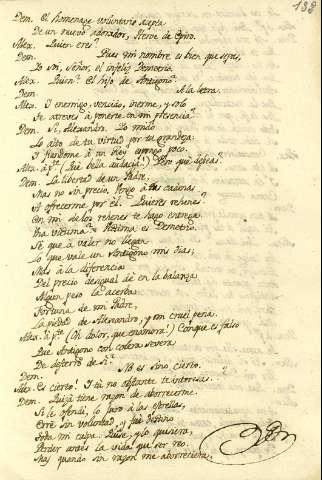 132
Dem. El homenage voluntario acepta
De un nuevo adorador, Heroe de Epiro.
Alex. Quien eres?
Dem. Pues mi nombre es bien que sepas,
Yo soi, Señor, el infeliz Demetrio.
Alex. Quien? El hijo de Antigono?
Dem. A la letra.
Alex. I enemigo, vencido, inerme, y solo
Se atreve à ponerte en mi presencia?
Dem. Si, Alexandro. Yo mido
Lo alto de tu virtud por tu grandeza
I fiandome à un Rey expongo poco.
Alex. à pte (Què bella audacia!) Pero què deseas?
Dem. La libertad de un Padre.
Mas no sin precio. Vengo à tus cadenas
A ofrecerme por èl. Quieres rehenes?
En mi de los rehenes te hago entrega.
Una victima? Victima es Demetrio.
Sè que à valer no llegan
Lo que vale un Antigono mis dias;
Mas à la diferencia
Del precio desigual dè en la balanza
Algun peso la acerba
Fortuna de mi Padre,
La piedad de Alexandro, y mi cruel pena.
Alex. à pte (Oh dolor, que enamora!) Conque es falso
Que Antigono con colera severa
De desterrò de sí?
Dem. No es sino cierto.
Alex. Es cierto! I tù no obstante te interesas.
Dem. Quizà tiene razon de aborrecerme.
Si le ofendì, lo juro à las estrellas,
Errè sin voluntad, y fuè destino
Toda mi culpa. Quise, y lo quisiera,
Perder antes la vida que ser reo.
Mas quando sin razon me aborreciera,